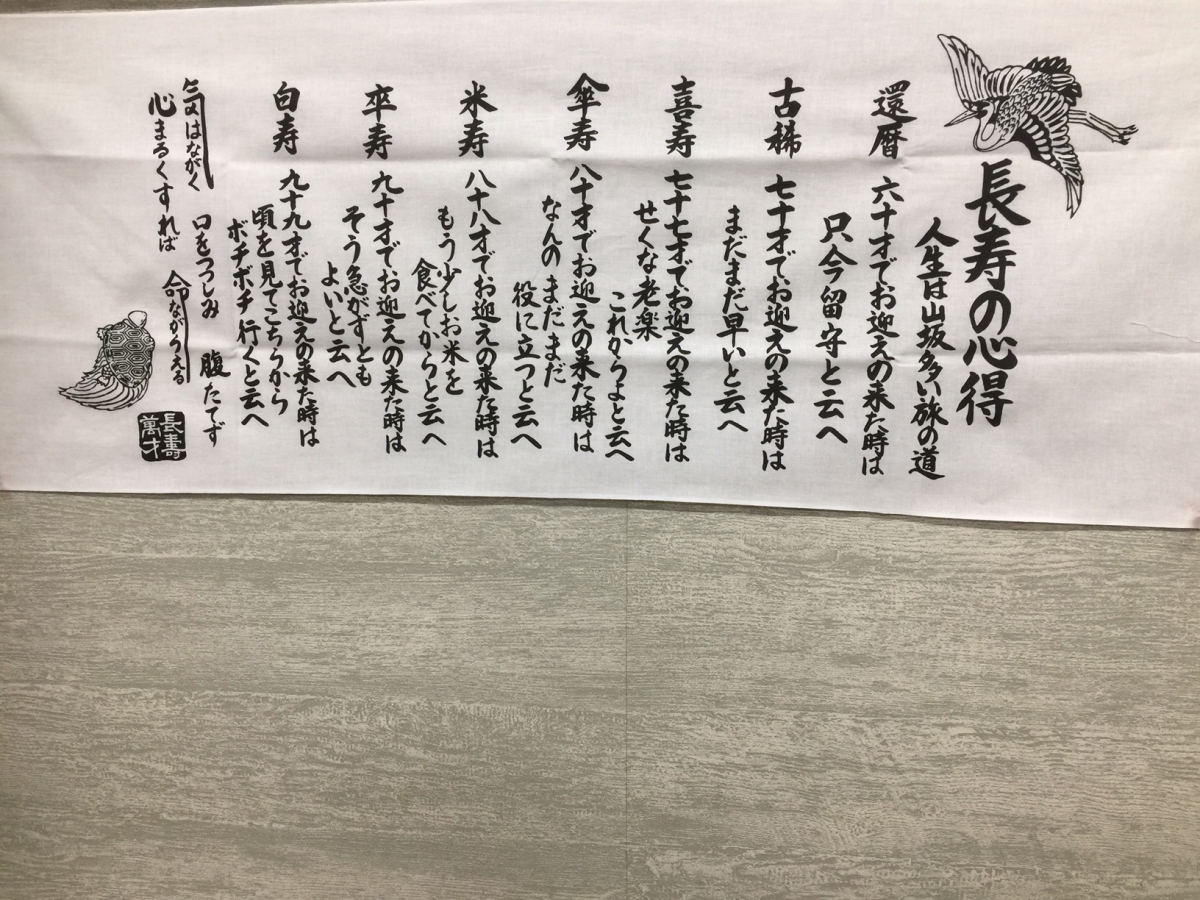 長寿の心得
人生は山坂多い旅の道
還暦 六十才でお迎えの来た時は
只今留守と云へ
古稀 七十才でお迎えの来た時は
まだまだ早いと云へ
喜寿 七十七才でお迎えの来た時は
せくな老楽
これからよと云へ
傘寿 八十才でお迎えの来た時は
なんのまだまだ
役に立つと云へ
米寿 八十八才でお迎えの来た時は
もう少しお米を
食べてからと云へ
卒寿 九十才でお迎えの来た時は
そう急がずとも
よいと云へ
白寿 九十九才でお迎えの来た時は
頃を見てこちらから
ボチボチ行くと云へ
気はながく 口をつつしみ 腹たてず
心まるくすれば 命ながらえる
長壽
萬才